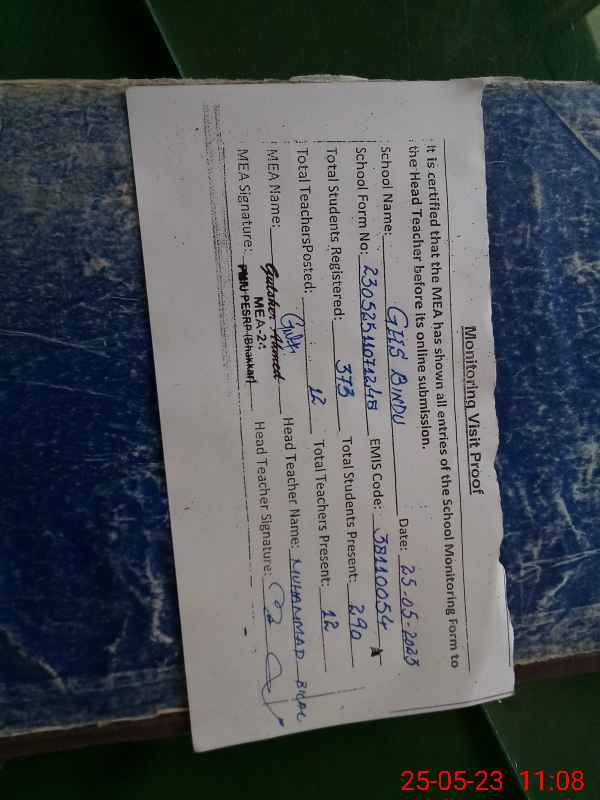 Monitoring Visit Proof
It is certified that the MEA has shown all entries of the School Monitoring Form to
the Head Teacher before its online submission.
School Name: GHS BINDU Date: 25-05-2023
School Form No: 23052511071248 EMIS Code: 38110054
Total Students Registered: 373 Total Students Present: 290
Total TeachersPosted: 12 Total Teachers Present: 12
MEA Name: Gulsher Ahmed Head Teacher Name: MUHAMMAD
MEA-2:
MEA Signature: PMIU-PESRP (Bhakkar) Head Teacher Signature:
25-05-23 11:08